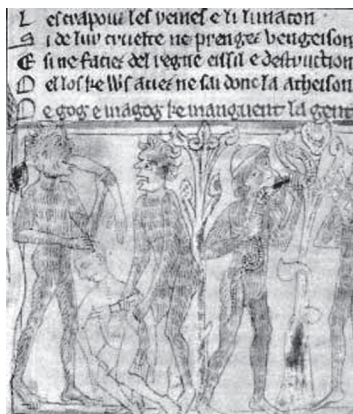 L es crapouz les veines e li lunaton
S i de luy cruelte ne prenget vengeison
E si ne facies del regne eissil e destruction
D el los ke lis aciet ne sai donc la acheison
D e gog e magog ke manguent la gent